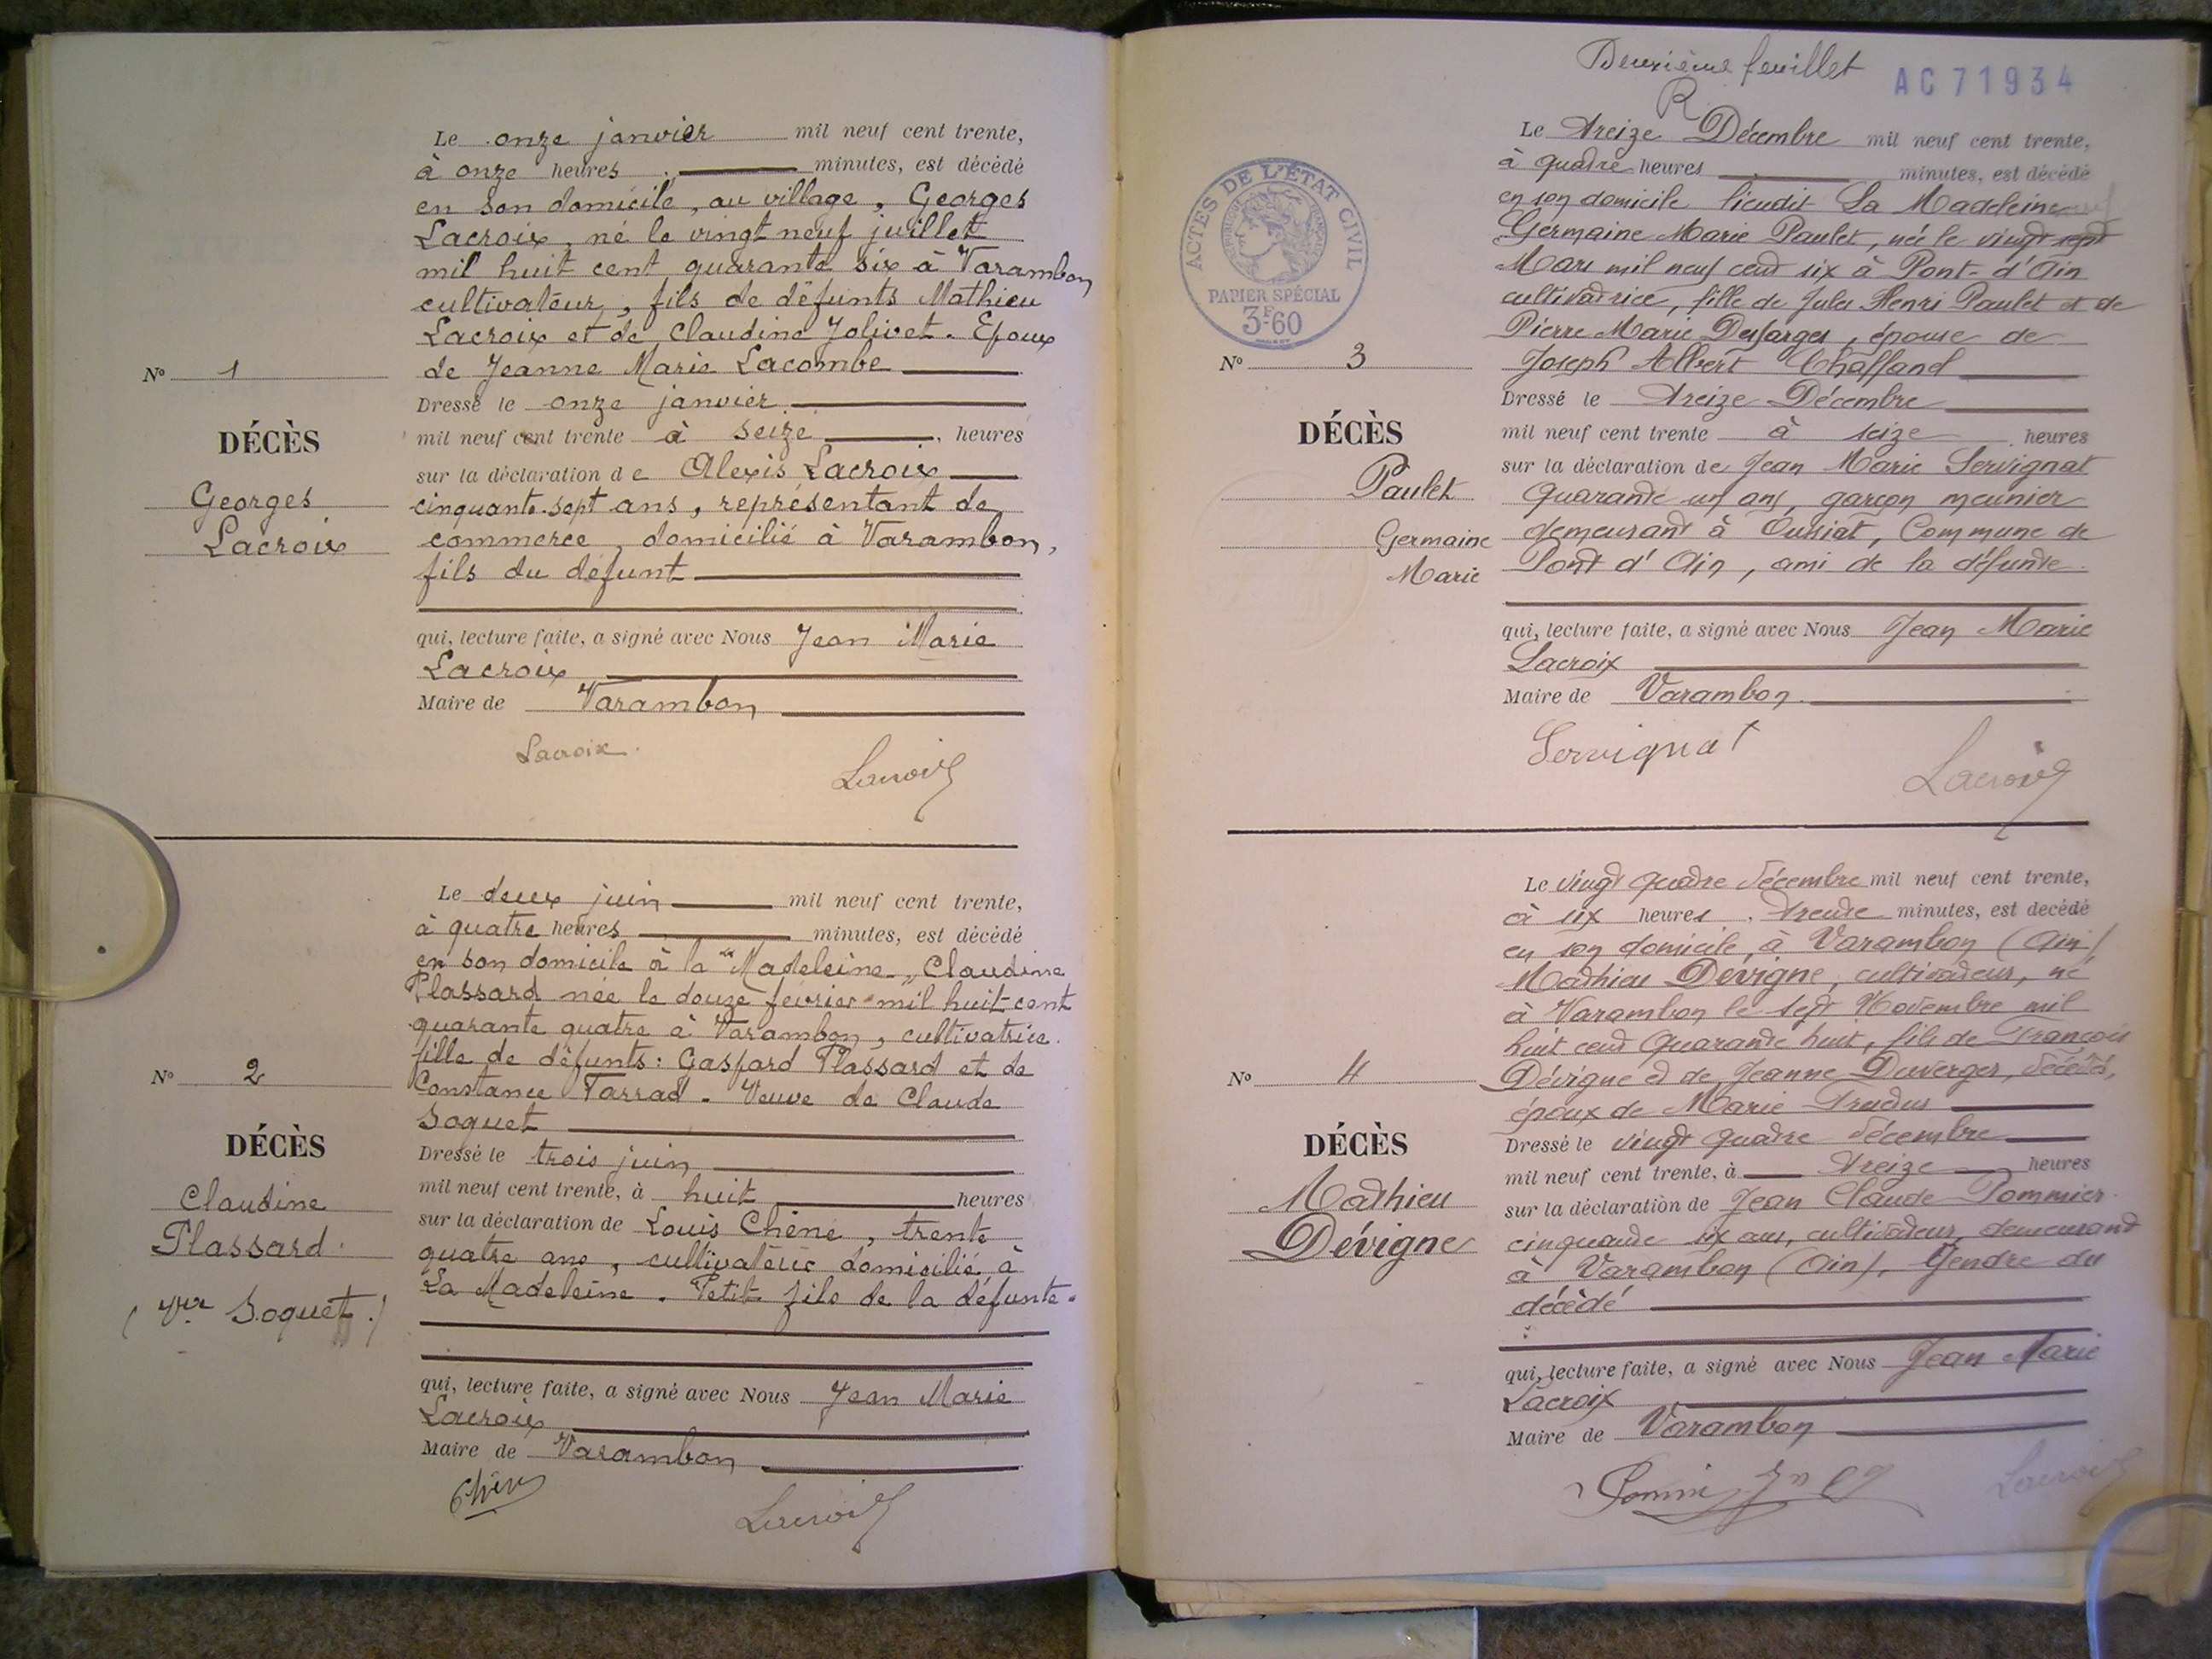 Le onze janvier mil neuf cent trente,
à onze heures minutes, est décédé
en son domicile, au village, Georges
Lacroix, né le vingt neuf juillet
mil huit cent quarante six à Varambon
cultivateur, fils de défunts Mathieu
Lacroix et de Claudine Jolivet. Epoux
de Jeanne Marie Lacombe
Dressé le onze janvier
mil neuf cent trente à seize heures
sur la déclaration de Alexis Lacroix
cinquante-sept ans, représentant de
commerce, domicilié à Varambon,
fils du défunt
qui, lecture faite, a signé avec Nous Jean Marie
Lacroix
Maire de Varambon
Lacroix.
Lacroix
N° 1
DÉCÈS
Georges
Lacroix
Le deux juin mil neuf cent trente,
à quatre heures minutes, est décédé
en son domicile à la "Madeleine", Claudine
Plassard née le douze février mil huit cent
quarante quatre à Varambon, cultivatrice.
fille de défunts: Gaspard Plassard et de
Constance Tarrad. Veuve de Claude
Soquet
Dressé le trois juin
mil neuf cent trente, à huit heures
sur la déclaration de Louis Chêne, trente
quatre ans, cultivateur domicilié à
La Madeleine. Petit fils de la défunte.
qui, lecture faite, a signé avec Nous Jean Marie
Lacroix
Maire de Varambon
Chêne
Lacroix
N° 2
DÉCÈS
Claudine
Plassard.
(Vve Soquet.)
Deuxième feuillet
R
AC71934
ACTES DE L'ÉTAT CIVIL
RÉPUBLIQUE FRANÇAISE
PAPIER SPÉCIAL
3F60
Le treize Décembre mil neuf cent trente,
à quatre heures minutes, est décédé
en son domicile lieudit La Madeleine
Germaine Marie Paulet, née le vingt sept
Mars mil neuf cent six à Pont-d'Ain
cultivatrice, fille de Jules Henri Paulet et de
Pierre Marie Desfarges, épouse de
Joseph Albert Chaffand
Dressé le treize Décembre
mil neuf cent trente à seize heures
sur la déclaration de Jean Marie Servignat
Quarante un ans, garçon meunier
demeurant à Oussiat, Commune de
Pont d'Ain, ami de la défunte.
qui, lecture faite, a signé avec Nous Jean Marie
Lacroix
Maire de Varambon
Servignat
Lacroix
N° 3
DÉCÈS
Paulet
Germaine
Marie
Le vingt quatre décembre mil neuf cent trente,
à six heures, trente minutes, est decédé
en son domicile, à Varambon (Ain)
Mathieu Dévigne, cultivateur, né
à Varambon le sept Novembre mil
huit cent Quarante huit, fils de François
Dévigne et de Jeanne Duverger, décédés,
époux de Marie
Dressé le vingt quatre décembre
mil neuf cent trente, à treize heures
sur la déclaration de Jean Claude Pommier
cinquante six ans, cultivateur, demeurant
à Varambon (Ain), Gendre du
décédé
qui, lecture faite, a signé avec Nous Jean Marie
Lacroix
Maire de Varambon
Lacroix
N° 4
DÉCÈS
Mathieu
Dévigne